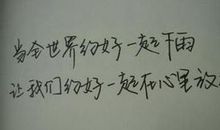 当全世界约好一起下雨
让我们约好一起在心里放